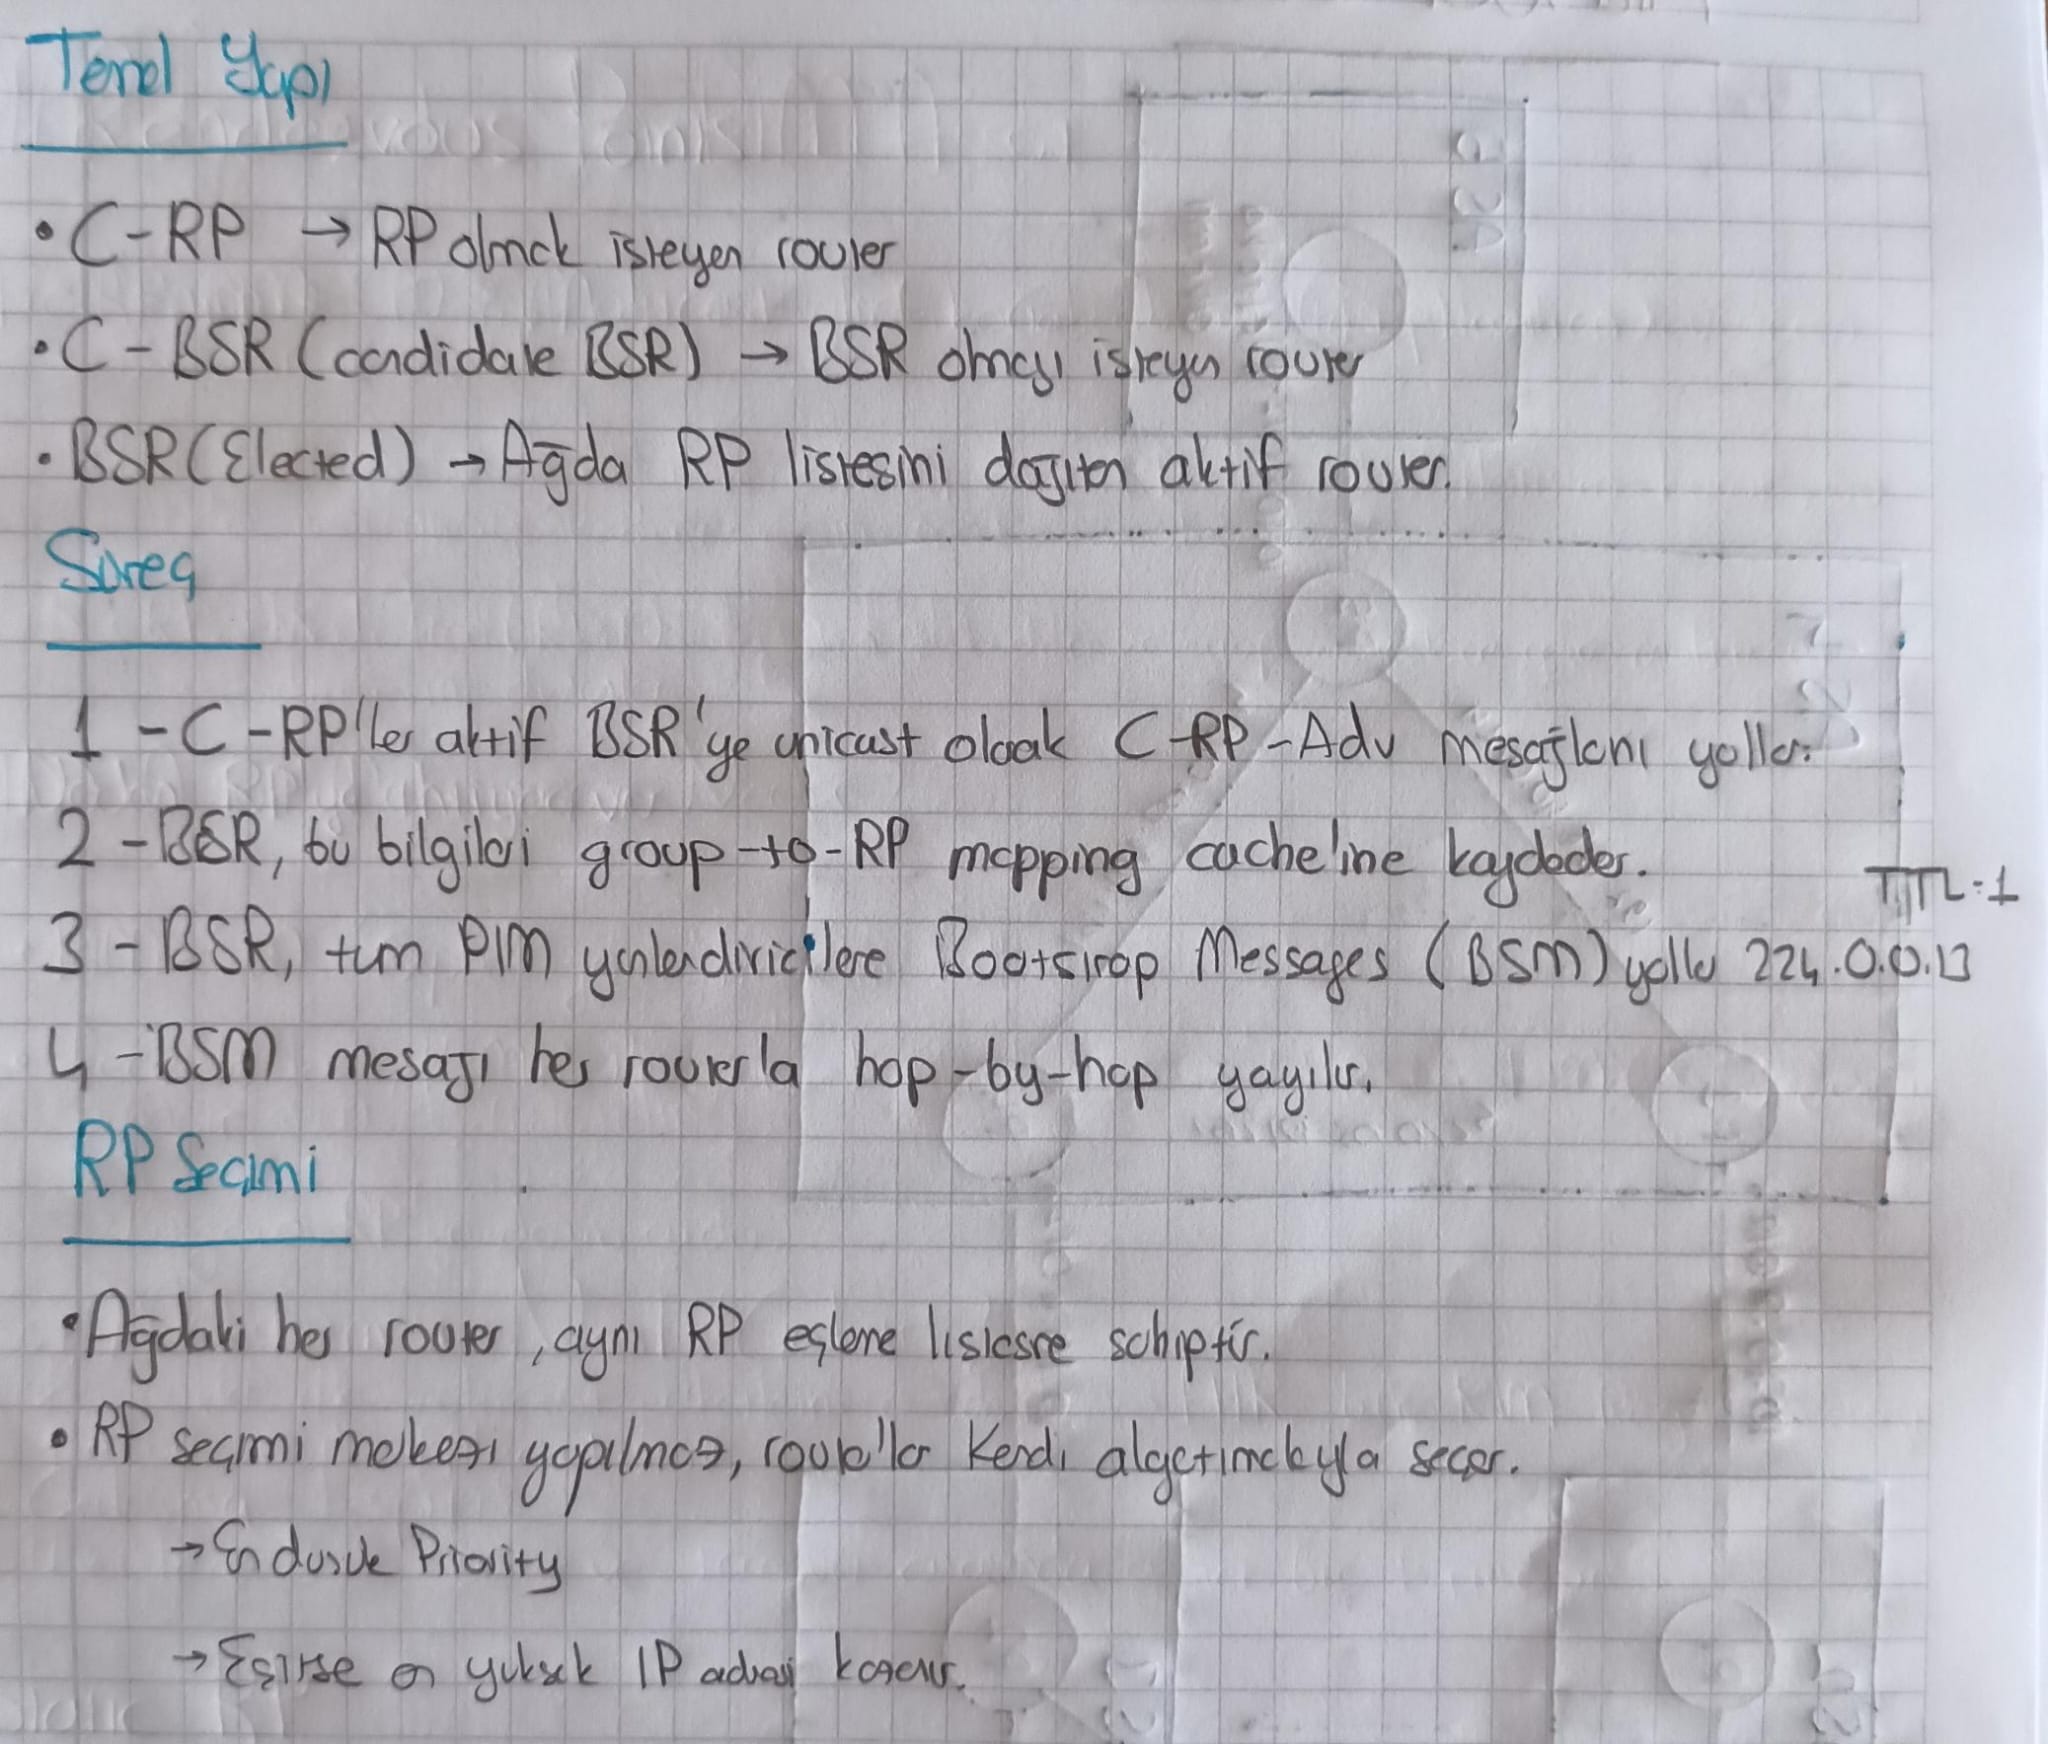 Temel Yapı
• C-RP → RP olmak isteyen router
• C-BSR (candidate BSR) → BSR olmayı isteyen router
• BSR (Elected) → Ağda RP listesini dağıtan aktif router.
Süreç
1 - C-RP'ler aktif BSR'ye unicast olarak C-RP-Adv mesajlarını yollar.
2 - BSR, bu bilgileri group-to-RP mapping cache'ine kaydeder.
TTL:1
3 - BSR, tum PIM yonlendiricilere Bootstrap Messages (BSM) yollar 224.0.0.13
4 - BSM mesajı her router'la hop-by-hop yayılır.
RP Seçimi
• Ağdaki her router, aynı RP eşleme listesine sahiptir.
• RP seçimi merkezi yapılmaz, router'lar kendi algoritmalarıyla seçer.
→ En dusuk Priority
→ Eşitse en yuksek IP adresi kazanır.